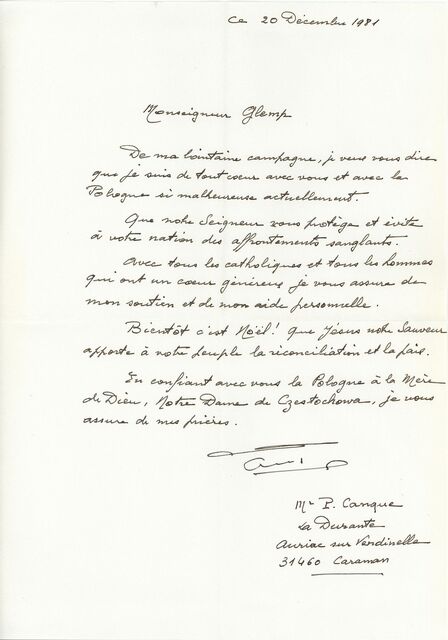 Ce 20 Décembre 1981
Monseigneur Glemp
De ma lointaine campagne, je veux vous dire
que je suis de tout coeur avec vous et avec la
Pologne si malheureuse actuellement.
Que notre Seigneur vous protège et évite
à votre nation des affrontements sanglants.
Avec tous les catholiques et tous les hommes
qui ont un coeur généreux je vous assure de
mon soutien et de mon aide personnelle.
Bientôt c'est Noël! que Jésus notre Sauveur
apporte à votre peuple la réconciliation et la paix.
En confiant avec vous la Pologne à la Mère
de Dieu, Notre Dame de Czestochowa, je vous
assure de mes prières.
Mr P. Canque
La Durante
Auriac sur Vendinelle
31460 Caraman